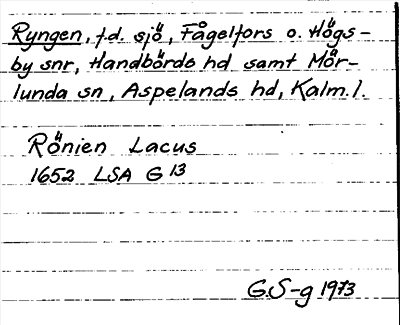 Ryngen, f.d. sjö, Fågelfors o. Högs-
by snr, Handbörds hd samt Mör-
lunda sn, Aspelands hd, Kalm. l.
Rönien Lacus
1652 LSA G 13
G.S-g 1973